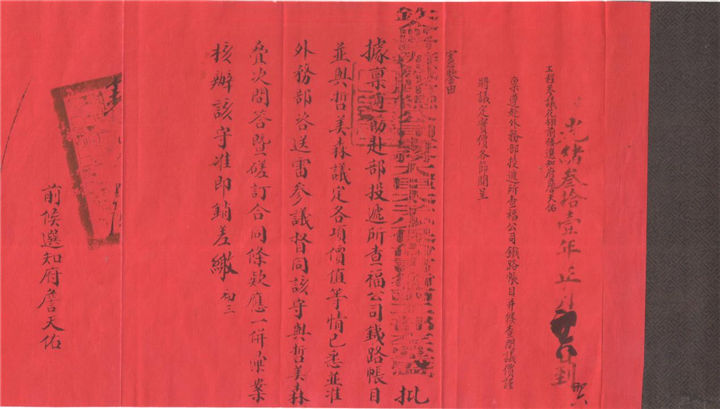 光緒叁拾壹年正月
到
工程參議花翎前候選知府詹天佑
稟遵赴外務部投遞所查福公司鐵路帳目并條查問議價謹
將議定實價各節開呈
憲鑒由
欽
批
據稟遵飭赴部投遞所查福公司鐵路帳目
並與哲美森議定各項價值等情已悉並准
外務部咨送雷參議督同該守與哲美森
疊次問答暨磋訂合同條款應一併彙案
核辦該守准即銷差繳 初三
前候選知府詹天佑